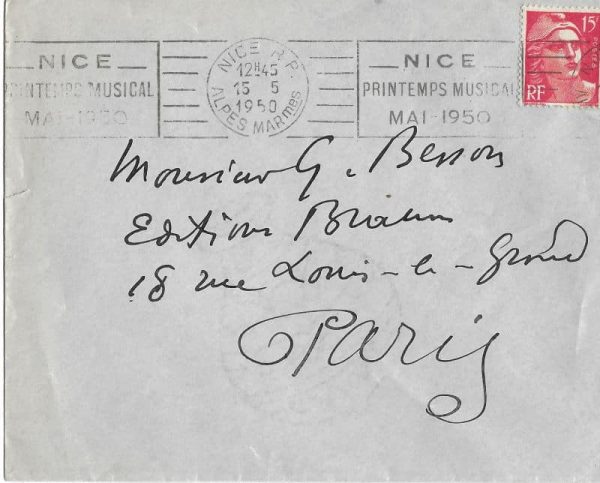 NICE
PRINTEMPS MUSICAL
MAI-1950
NICE R.P.
12H45
15 5
1950
ALPES MARmes
NICE
PRINTEMPS MUSICAL
MAI-1950
15F
POSTES
RF
Monsieur G. Besson
Editions Braun
18 rue Louis-le-Grand
Paris